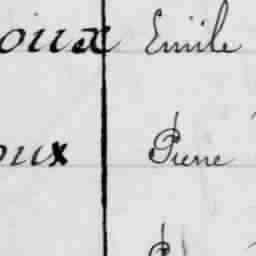 oux Emile
oux Pierre